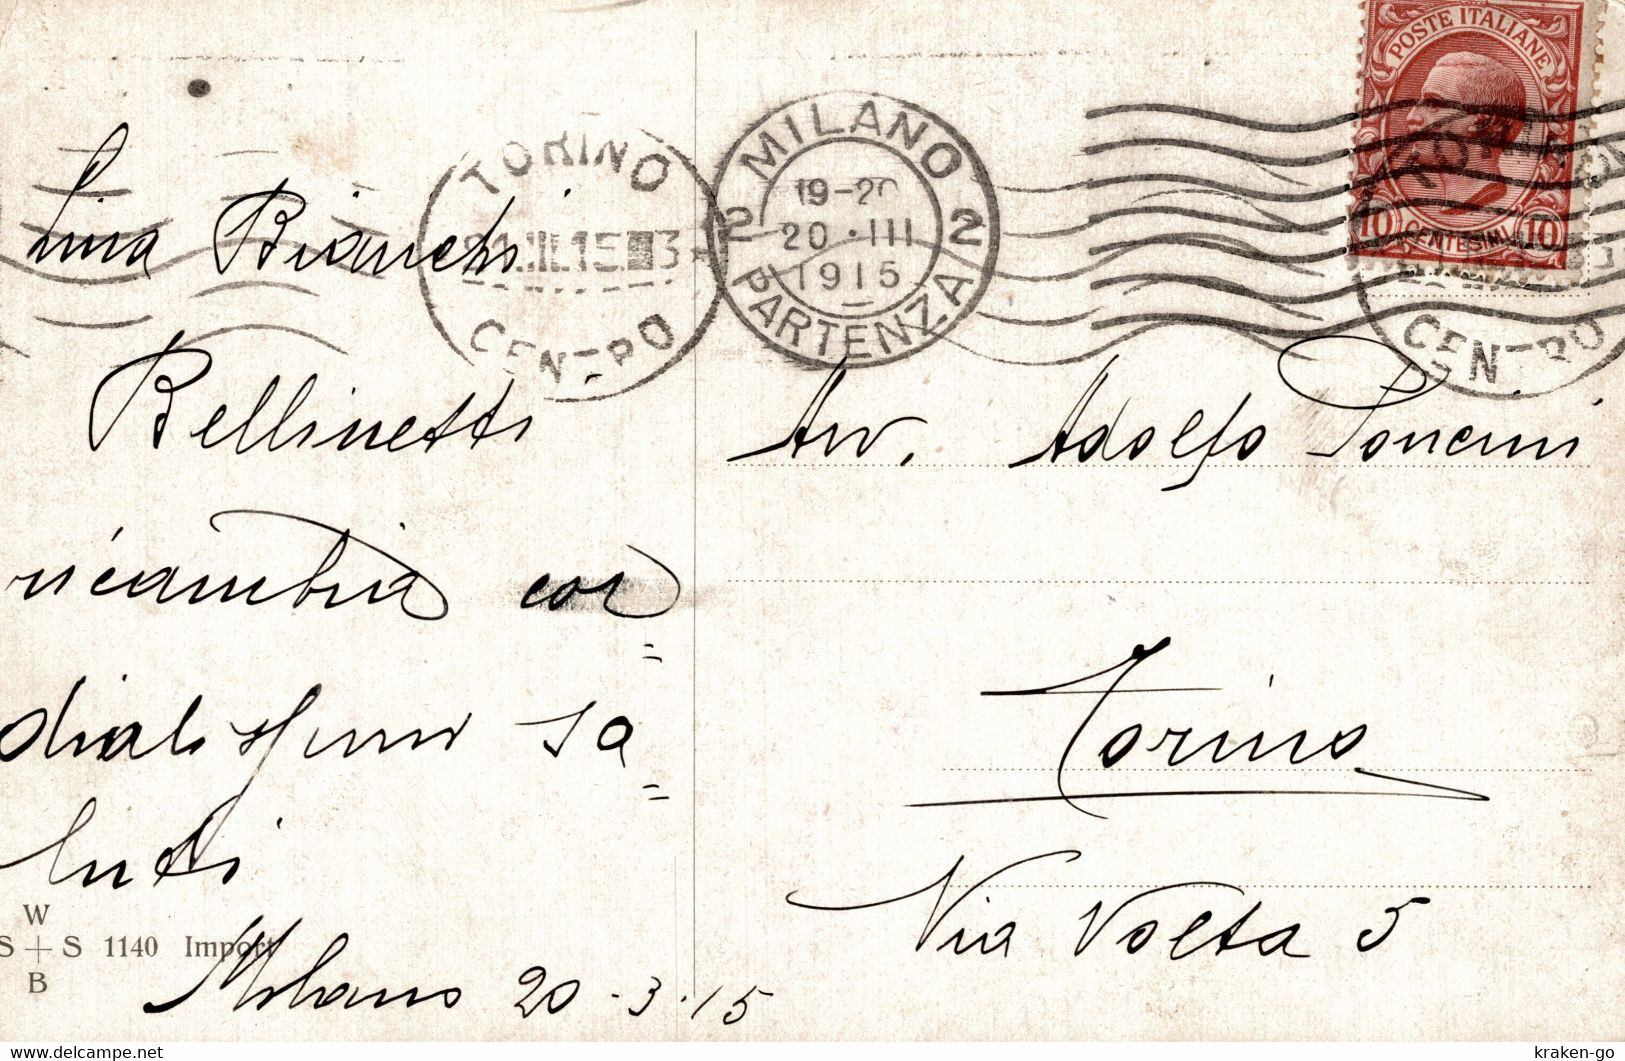 Lina Bianchi
Bellinetti
ricambia cor=
dialissimi sa=
luti
Milano 20-3-15
W
S+S 1140 Import
B
TORINO
CENTRO
MILANO
19-20
2 20·III 2
1915
PARTENZA
POSTE ITALIANE
10 CENTESIMI 10
CENTRO
Avv. Adolfo Poncini
Torino
Via Volta 5
kraken-go